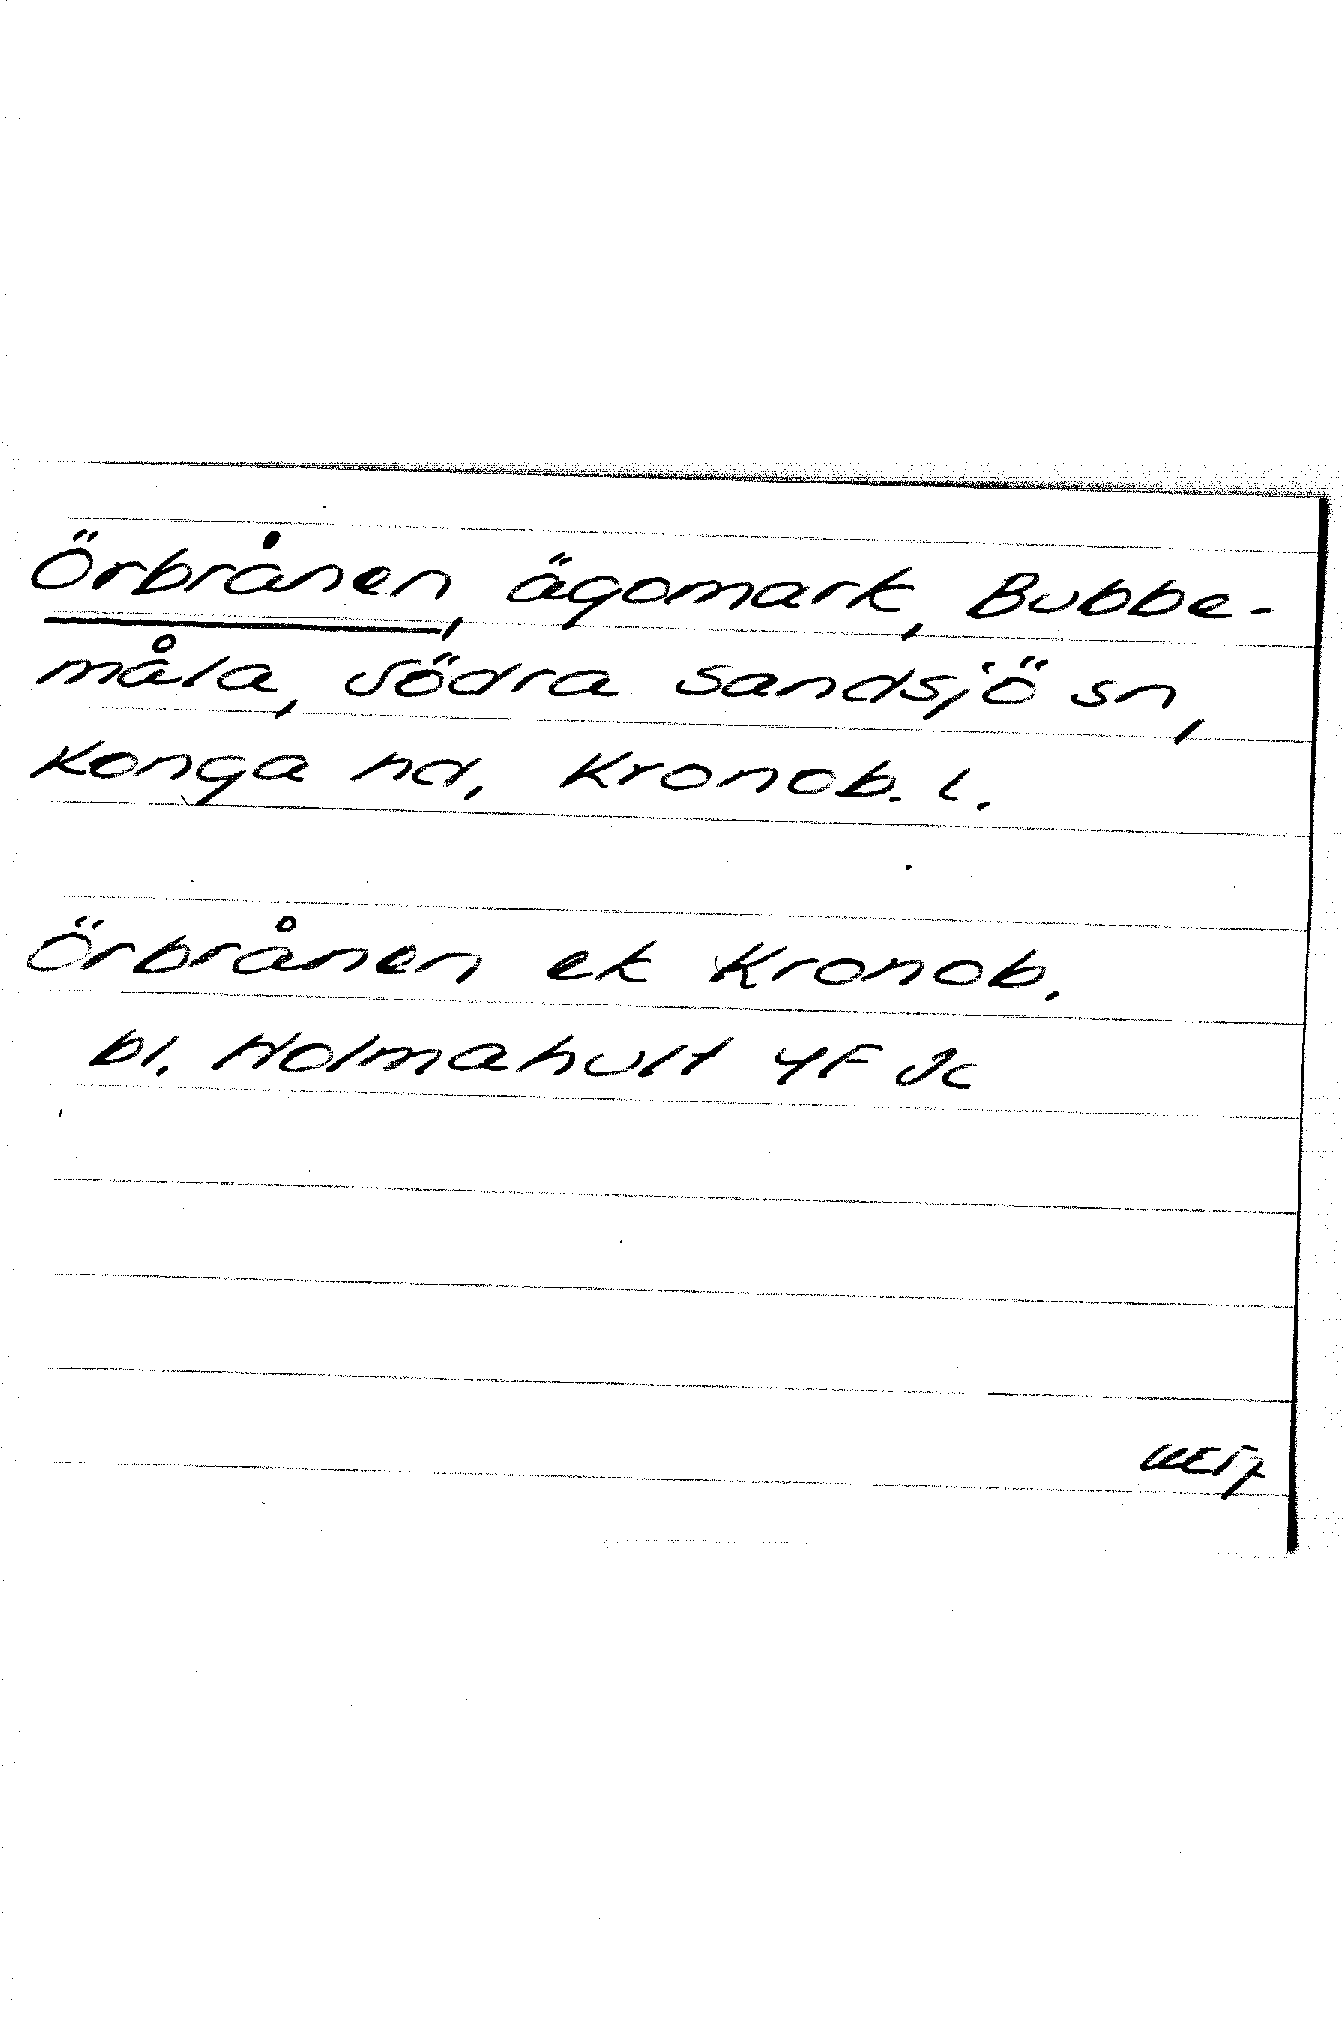 Örbrånen, ägomark, Bubbe-
måla, Södra Sandsjö sn,
Konga hd, Kronob. l.
Örbrånen ek Kronob.
bl. Holmahult 4F 2c